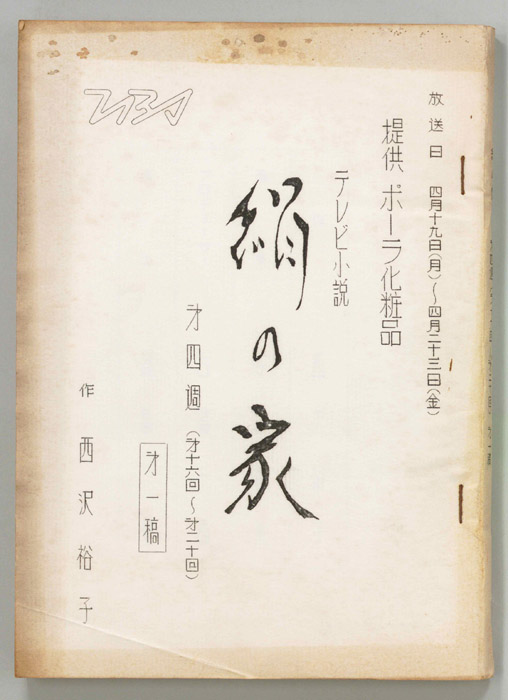 放送日 四月十九日(月)〜四月二十三日(金)
提供 ポーラ化粧品
テレビ小説
絹の家
才四週(才十六回〜才二十回)
才一稿
作 西沢裕子
TBS